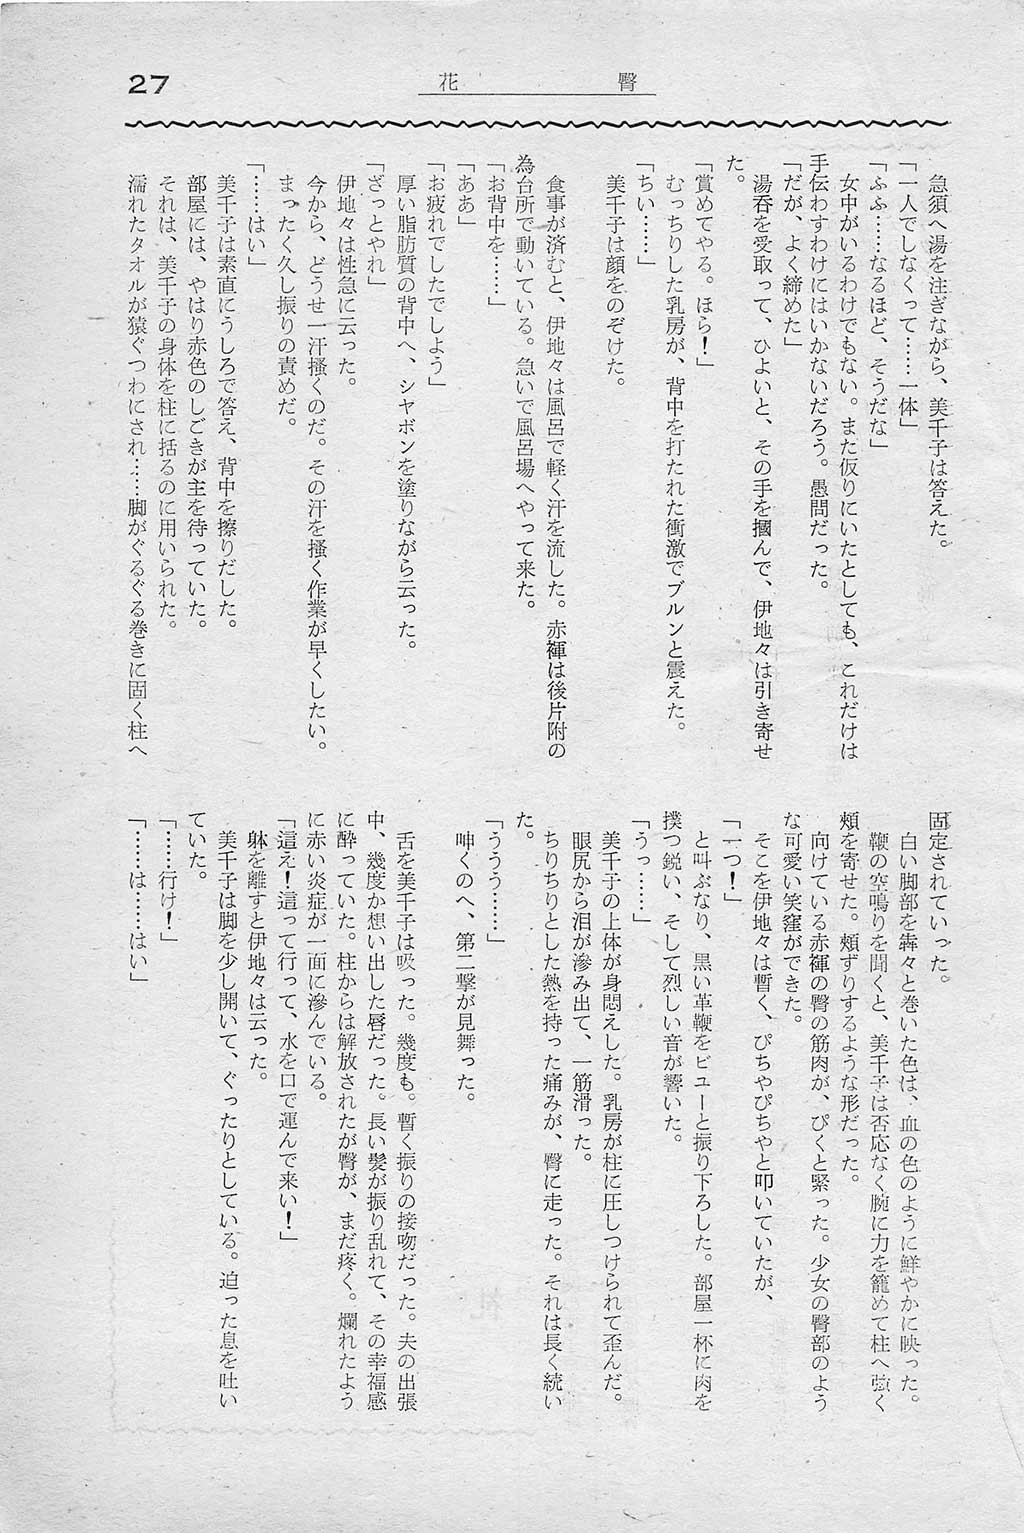 27
臀花
急須へ湯を注ぎながら、美千子は答えた。
「一人でしなくって……一体」
「ふふ……なるほど、そうだな」
女中がいるわけでもない。また仮りにいたとしても、これだけは
手伝わすわけにはいかないだろう。愚問だった。
「だが、よく締めた」
湯呑を受取って、ひよいと、その手を摑んで、伊地々は引き寄せ
た。
「賞めてやる。ほら！」
むっちりした乳房が、背中を打たれた衝激でブルンと震えた。
「ちい……」
美千子は顔をのぞけた。
食事が済むと、伊地々は風呂で軽く汗を流した。赤褌は後片附の
為台所で動いている。急いで風呂場へやって来た。
「お背中を……」
「ああ」
「お疲れでしたでしよう」
厚い脂肪質の背中へ、シヤボンを塗りながら云った。
「ざっとやれ」
伊地々は性急に云った。
今から、どうせ一汗搔くのだ。その汗を搔く作業が早くしたい。
まったく久し振りの責めだ。
「……はい」
美千子は素直にうしろで答え、背中を擦りだした。
部屋には、やはり赤色のしごきが主を待っていた。
それは、美千子の身体を柱に括るのに用いられた。
濡れたタオルが猿ぐつわにされ……脚がぐるぐる巻きに固く柱へ
固定されていった。
白い脚部を犇々と巻いた色は、血の色のように鮮やかに映った。
鞭の空鳴りを聞くと、美千子は否応なく腕に力を籠めて柱へ強く
頰を寄せた。頰ずりするような形だった。
向けている赤褌の臀の筋肉が、ぴくと緊った。少女の臀部のよう
な可愛い笑窪ができた。
そこを伊地々は暫く、ぴちやぴちやと叩いていたが、
「一つ！」
と叫ぶなり、黒い革鞭をビューと振り下ろした。部屋一杯に肉を
撲つ鋭い、そして烈しい音が響いた。
「うっ……」
美千子の上体が身悶えした。乳房が柱に圧しつけられて歪んだ。
眼尻から泪が滲み出て、一筋滑った。
ちりちりとした熱を持った痛みが、臀に走った。それは長く続い
た。
「ううう……」
呻くのへ、第二撃が見舞った。
舌を美千子は吸った。幾度も。暫く振りの接吻だった。夫の出張
中、幾度か想い出した唇だった。長い髪が振り乱れて、その幸福感
に酔っていた。柱からは解放されたが臀が、まだ疼く。爛れたよう
に赤い炎症が一面に滲んでいる。
「這え！這って行って、水を口で運んで来い！」
躰を離すと伊地々は云った。
美千子は脚を少し開いて、ぐったりとしている。迫った息を吐い
ていた。
「……行け！」
「……は……はい」